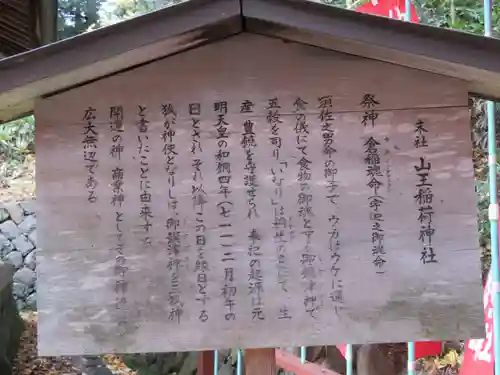 末社 山王稲荷神社
祭神 倉稲魂命(宇迦之御魂命)
須佐之男命の御子で、ウカはウケに通じ
食の儀にて食物の御魂と下る御饌津神で
五穀を司り「いなり」は稲生りにして、生
産、豊穣を守護せられ、奉祀の起源は元
明天皇の和銅四年(七一一)二月初午の
日とされ、それ以降この日を縁日とする
狐が神使となりしは、御饌津神を三狐神
と書いたことに由来する
開運の神、商業神としてその御神徳は
広大無辺である